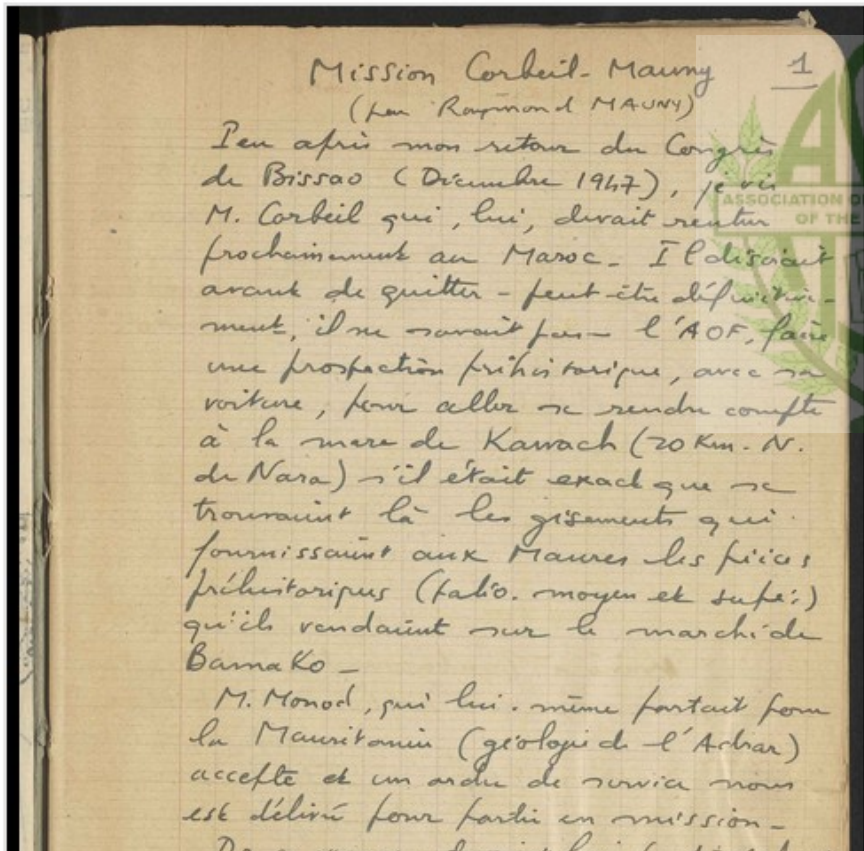 Mission Corbeil-Mauny
1
(par Raymond MAUNY)
Peu après mon retour du Congrès
de Bissao (Décembre 1947), je vis
M. Corbeil qui, lui, devait rentrer
prochainement au Maroc. Il désirait
avant de quitter - peut-être définitive-
ment, il ne savait pas - l'AOF, faire
une prospection préhistorique, avec sa
voiture, pour aller se rendre compte
à la mare de Kawach (20 Km. N.
de Nara) s'il était exact que se
trouvaient là les gisements qui
fournissaient aux Maures les pièces
préhistoriques (paléo. moyen et supé:)
qu'ils vendaient sur le marché de
Bamako -
M. Monod, qui lui-même partait pour
la Mauritanie (géologie de l'Adrar)
accepte et un ordre de service nous
est délivré pour partir en mission -
ASSOCIATION
OF THE